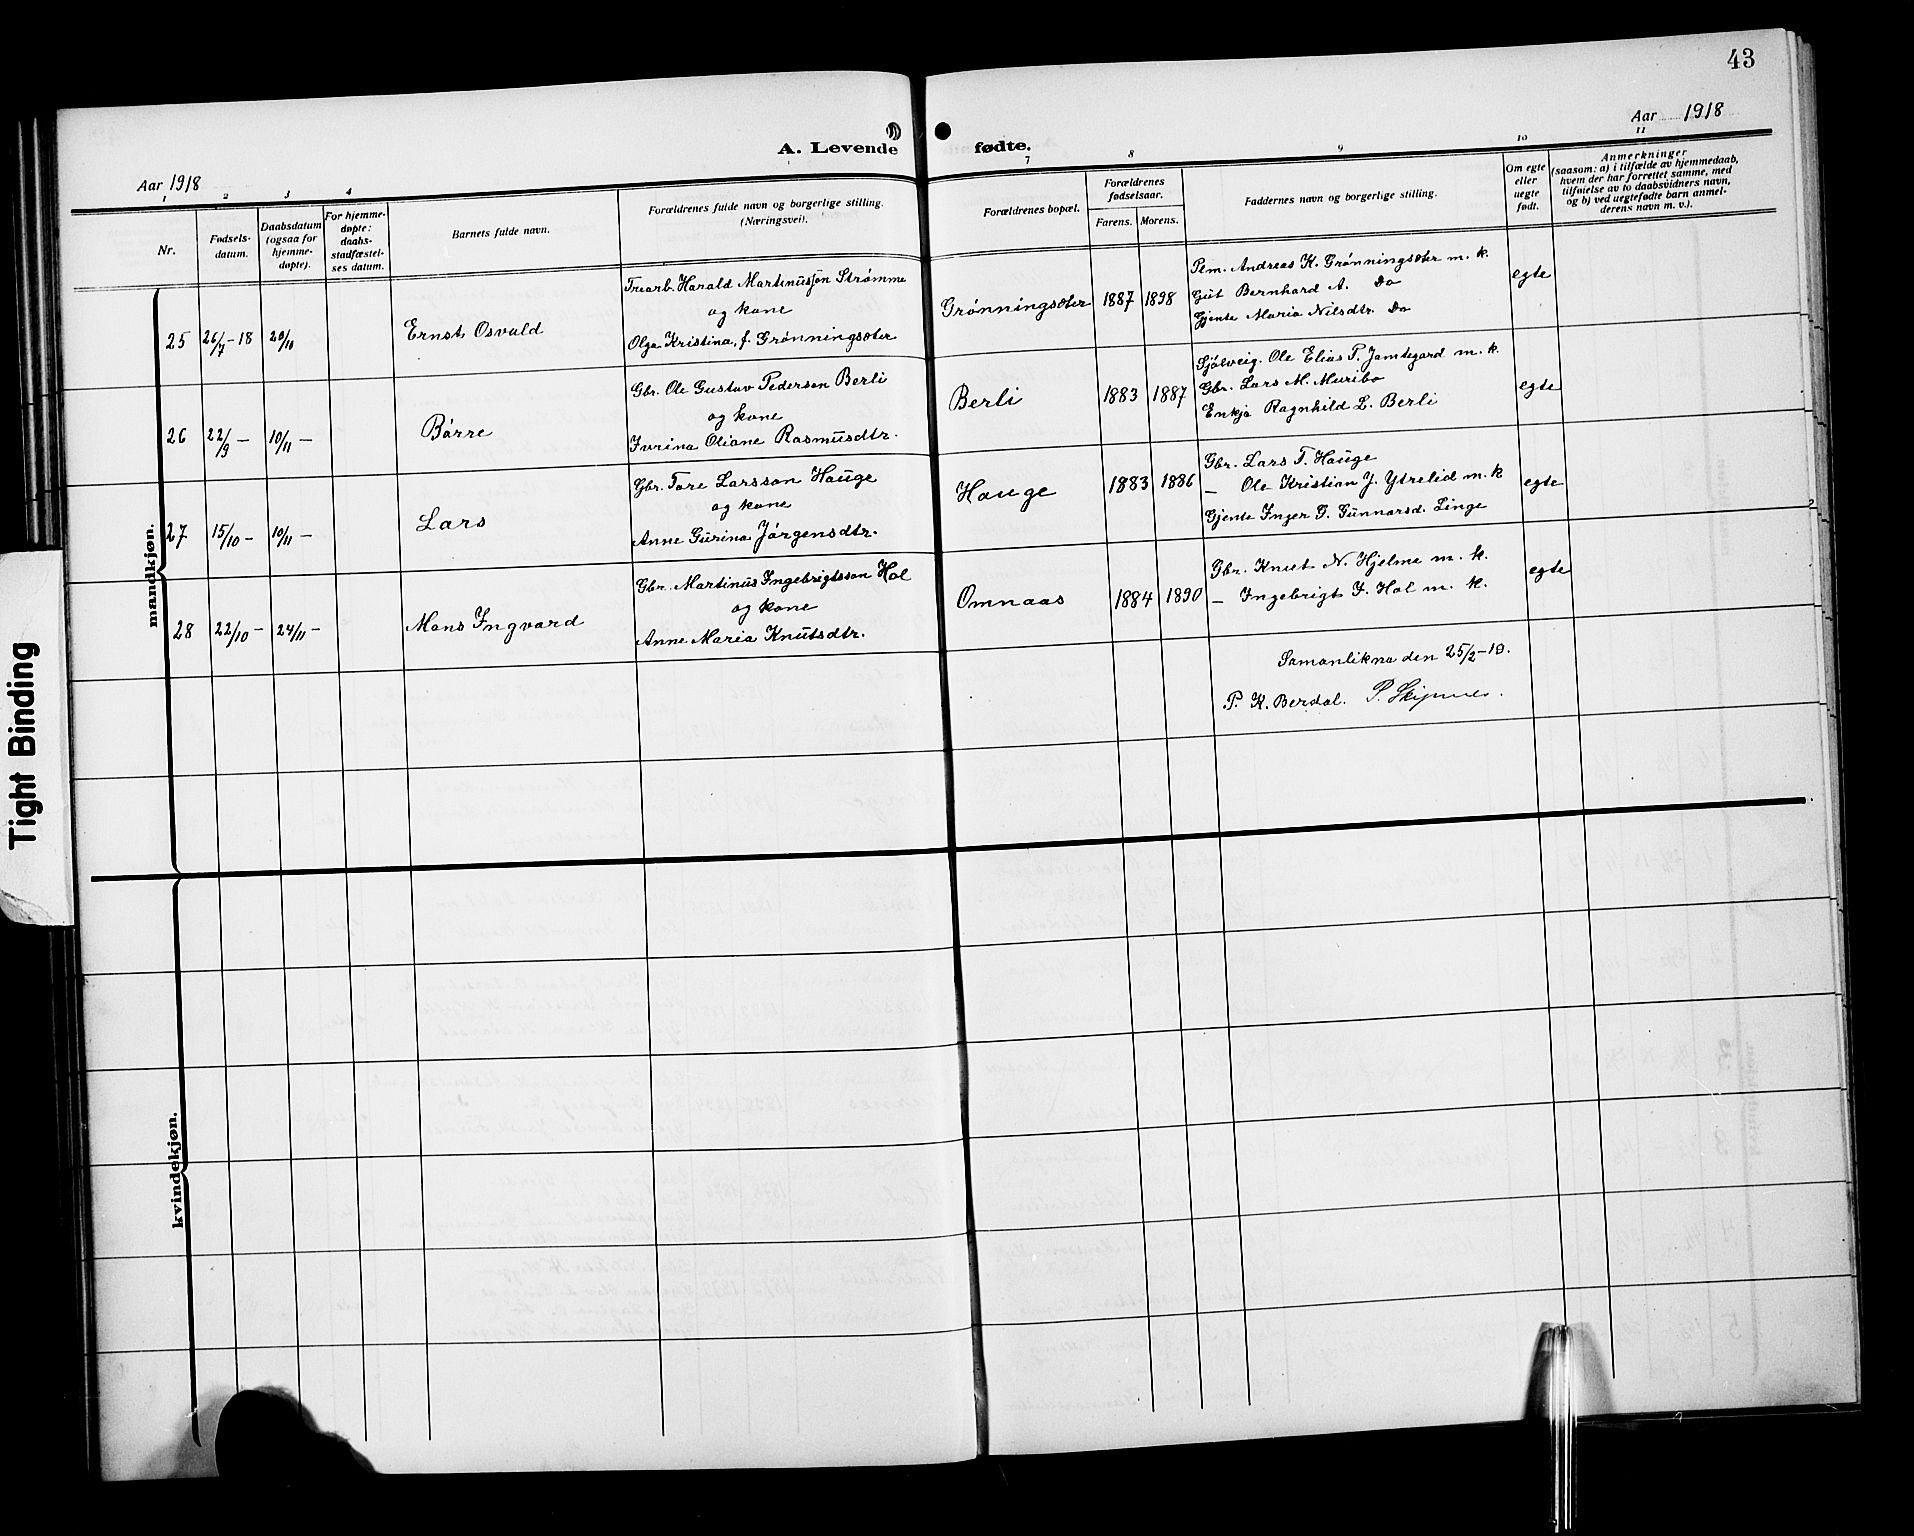 43
Aar 1918
Aar 1918
A. Levende fødte.
1 2 3 4 7 8 9 10 11
Nr.
Fødsels-
datum.
Daabsdatum
(ogsaa for
hjemme-
døpte).
For hjemme-
døpte:
daabs-
stadfæstel-
ses datum.
Barnets fulde navn.
Forældrenes fulde navn og borgerlige stilling.
(Næringsvei).
Forældrenes bopæl.
Forældrenes
fødselsaar.
Farens. Morens.
Faddernes navn og borgerlige stilling.
Om egte
eller
uegte
født.
Anmerkninger
(saasom: a) i tilfælde av hjemmedaab,
hvem der har forrettet samme, med
tilføielse av to daabsvidners navn,
og b) ved uegtefødte barn anmel-
derens navn m. v.).
mandkjøn.
25 26/7-18 20/10 Ernst Osvald
Trearb. Harald Martinussøn Strømme
og kone
Olga Kristina, f. Grønningsæter
Grønningsæter 1887 1898
Pem. Andreas K. Grønningsæter m. k.
Gut Bernhard A. Do
Gjente Maria Nilsdtr. Do
egte
26 22/9 - 10/11 - Børre
Gbr. Ole Gustav Pederson Berli
og kone
Ivrina Oliane Rasmusdtr.
Berli 1883 1887
Sjølveig. Ole Elias P. Jamtegard m. k.
Gbr. Lars M. Muribø
Enkja Ragnhild L. Berli
egte
27 15/10 - 10/11 - Lars
Gbr. Tore Larsson Hauge
og kone
Anne Gurina Jørgensdtr.
Hauge 1883 1886
Gbr. Lars T. Hauge
- Ole Kristian J. Ytrelid m. k
Gjente Inger G. Gunnarsd. Linge
egte
28 22/10 - 24/11 - Mons Ingvard
Gbr. Martinus Ingebrigtsson Hol
og kone
Anne Maria Knutsdtr.
Omnaas 1884 1890
Gbr. Knut N. Hjelme m. k.
- Ingebrigt I. Hol m. k.
egte
Samanlikna den 25/2-19.
P. K. Berdal. P. Skipnes.
kvindekjøn.
Tight Binding